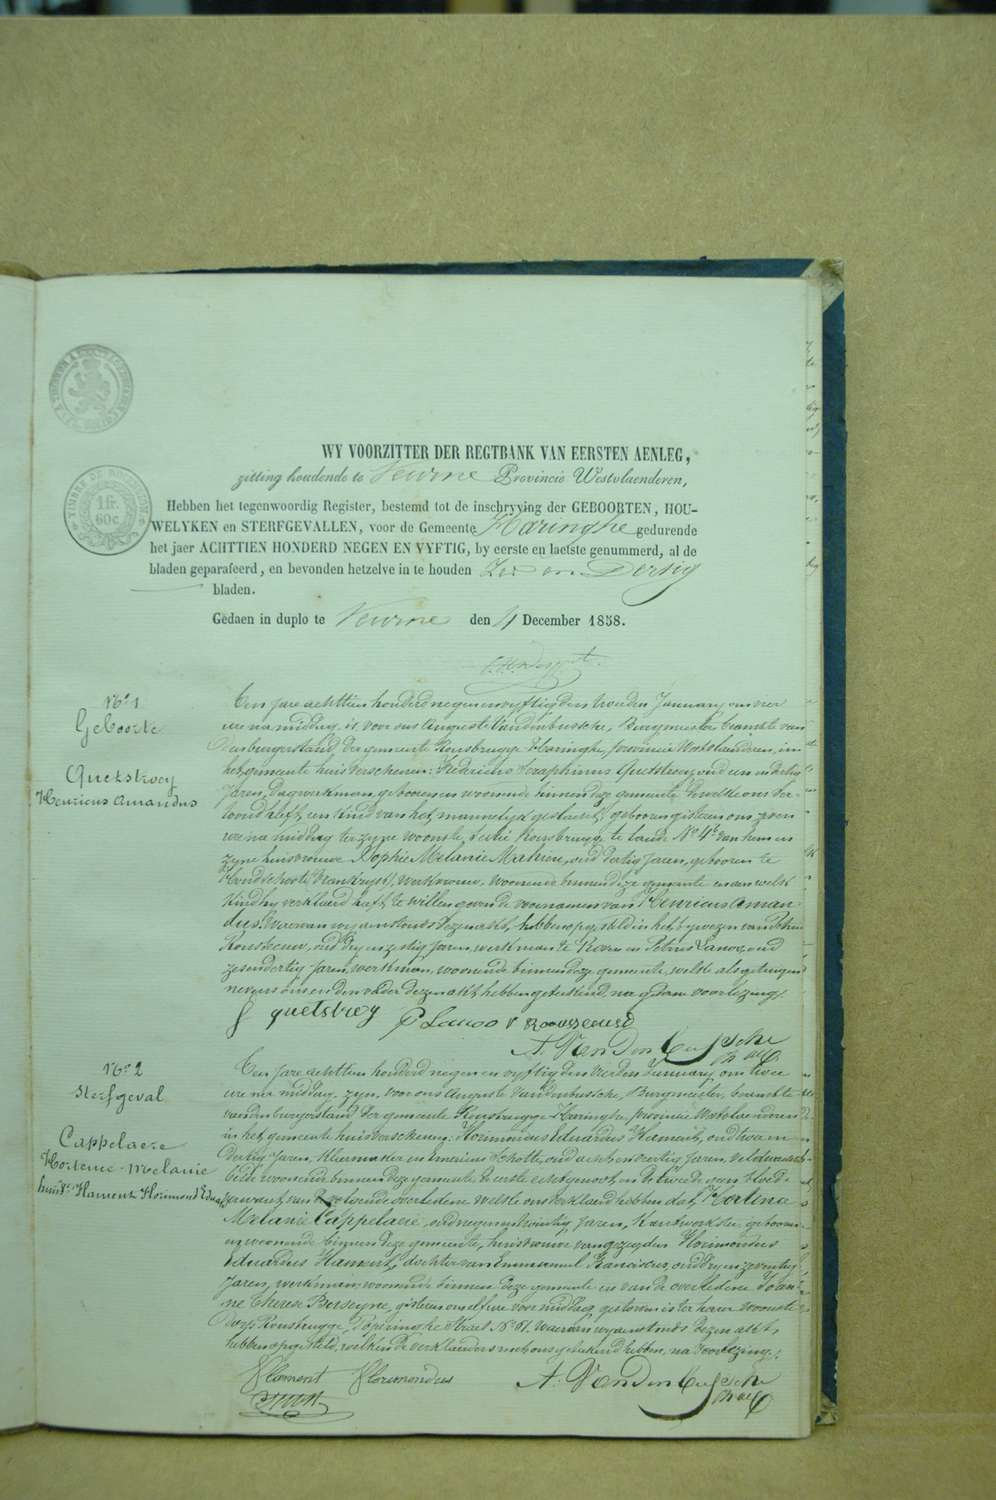 TIMBRE DE DIMENSION
1 fr.
60c
WY VOORZITTER DER REGTBANK VAN EERSTEN AENLEG,
zitting houdende te Veurne Provincie Westvlaenderen,
Hebben het tegenwoordig Register, bestemd tot de inschryving der GEBOORTEN, HOU-
WELYKEN en STERFGEVALLEN, voor de Gemeente Haringhe gedurende
het jaer ACHTTIEN HONDERD NEGEN EN VYFTIG, by eerste en laetste genummerd, al de
bladen geparafeerd, en bevonden hetzelve in te houden Zes en Dertig
bladen.
Gedaen in duplo te Veurne den 4 December 1858.
No 1
Geboorte
Quetstroey
Henricus Amandus
Een jare achttien honderd negen en vyftig den tweeden January om vier
ure na middag, is voor ons Auguste Vandenbussche, Burgmeester beambte van
den burgerstand der gemeente Rousbrugge Haringhe, provincie Westvlaanderen, in
het gemeente huis verschenen: Frederics Seraphinus Quetstroey, oud een en dertig
Jaren, dagwerkman, geboren en woonende binnen deze gemeente dewelke ons ver-
toond heeft, een kind van het mannelyk geslacht, geboren gisteren ons zeven
ure na middag ter zyne woonste, sectie Rousbrugge te lande No 4 van hem en
zyne huisvrouwe Sophie Melanie Mahieu, oud dertig Jaren, geboren te
Hondschoote (Vrankryk), werkvrouw, woonende binnen deze gemeente en aan welk
kind hy verklaard heeft te willen geven de voornamen van Henricus Aman-
dus. Waervan wy aenstonds dezen akt hebben opgesteld in het bywezen van
Rousseeuw, oud dry en zestig Jaren, werkman te Rever en Lanoo, oud
zes en dertig Jaren, werkman, woonende binnen deze gemeente, welke als getuigen
nevens ons en den vader dezen akt hebben geteekend, na gedane voorlezing.
F quetstroey P Lanoo V Rousseeuw
A. Vandenbussche
No 2
Sterfgeval
Cappelaere
Hortence-Melanie
huisv. Flament Florimond Eduard
Een jare achttien honderd negen en vyftig den vierden January, om twee
ure na middag, zyn, voor ons Auguste Vandenbussche, Burgmeester, beambte
van den burgerstand der gemeente Rousbrugge-Haringhe, provincie Westvlaanderen
in het gemeente huis verschenen: Florimondus Eduardus Flament, oud twee en
dertig Jaren, kleermaker en Americus Scholte, oud acht en veertig Jaren, veldwachter
beide woonende binnen deze gemeente de eerste echtgenoot, en de tweede geen bloed-
verwant van de volgende overledene welke ons verklaerd hebben dat, Hortence
Melanie Cappelaere, oud negen en twintig Jaren, kantwerkster, geboren
en woonende binnen deze gemeente, huisvrouwe van gezegden Florimondus
Eduardus Flament, dochter van Emmanuel Franciscus, oud dry en zeventig
Jaren, werkman woonende binnen deze gemeente en van de overledene Joan-
ne Therese Berseyne, gisteren ons elf ure voor middag, gestorven is ter harer woonste
dorp Rousbrugge, Poperinghe straet No 61. waervan wy aenstonds dezen akt
hebben opgesteld, welken de verklaarders met ons geteekend hebben, na voorlezing.
Flament Florimondus
A. Vandenbussche